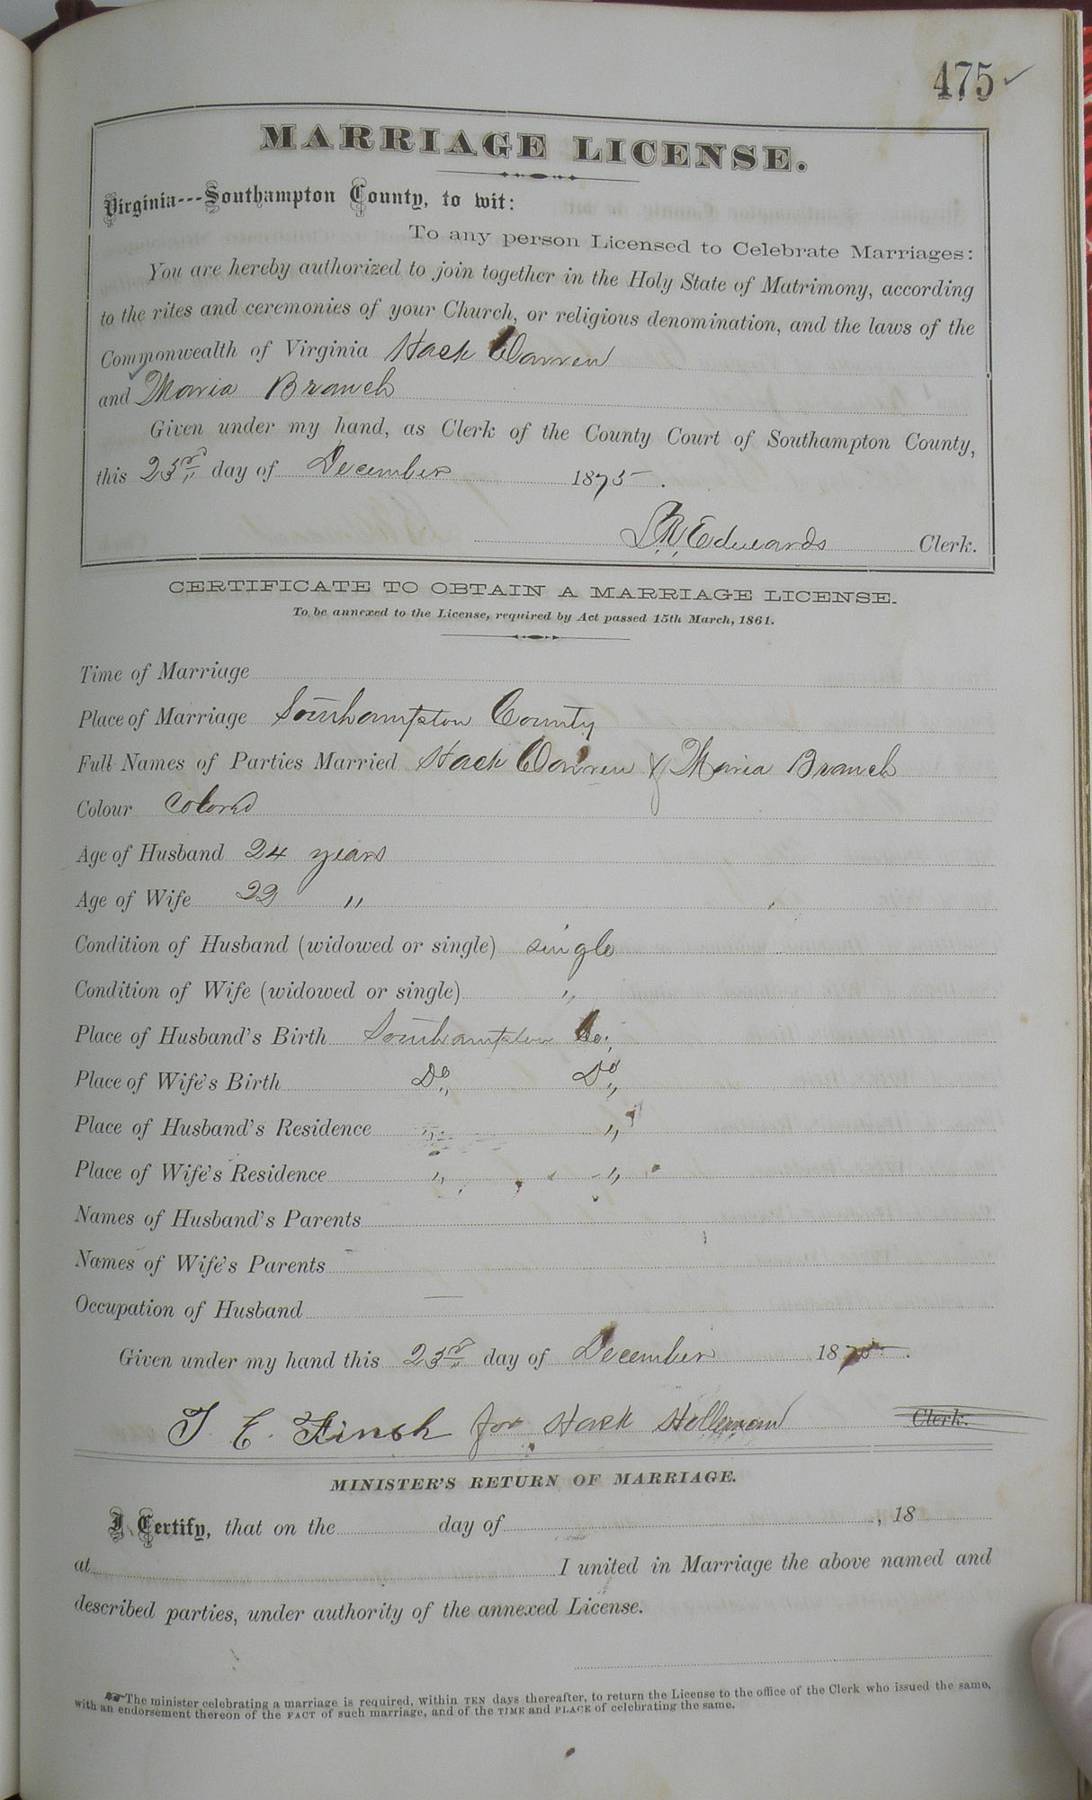 475 ✓
MARRIAGE LICENSE.
Virginia---Southampton County, to wit:
To any person Licensed to Celebrate Marriages:
You are hereby authorized to join together in the Holy State of Matrimony, according
to the rites and ceremonies of your Church, or religious denomination, and the laws of the
Commonwealth of Virginia Hack Warren
and Maria Branch
Given under my hand, as Clerk of the County Court of Southampton County,
this 23rd day of December 1875.
L. R. Edwards Clerk.
CERTIFICATE TO OBTAIN A MARRIAGE LICENSE.
To be annexed to the License, required by Act passed 15th March, 1861.
Time of Marriage
Place of Marriage Southampton County
Full Names of Parties Married Hack Warren & Maria Branch
Colour Colored
Age of Husband 24 years
Age of Wife 22 "
Condition of Husband (widowed or single) single
Condition of Wife (widowed or single) "
Place of Husband's Birth Southampton Co.
Place of Wife's Birth Do Do
Place of Husband's Residence " "
Place of Wife's Residence " "
Names of Husband's Parents
Names of Wife's Parents
Occupation of Husband
Given under my hand this 23rd day of December 1875.
T. E. Finch for Hack Clerk.
MINISTER'S RETURN OF MARRIAGE.
I Certify, that on the day of , 18
at I united in Marriage the above named and
described parties, under authority of the annexed License.
The minister celebrating a marriage is required, within TEN days thereafter, to return the License to the office of the Clerk who issued the same,
with an endorsement thereon of the FACT of such marriage, and of the TIME and PLACE of celebrating the same.